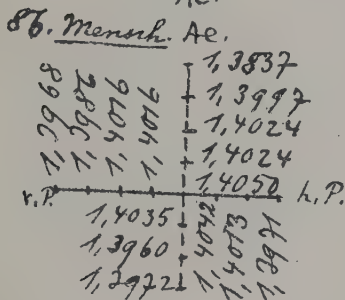 86. Mensch. Ae.
1,3837
1,3997
1,4024
1,4024
1,4050
1,3968
1,3982
1,4016
1,4016
v.P.
h.P.
1,4035
1,3960
1,3972
1,4042
1,4013
1,3971